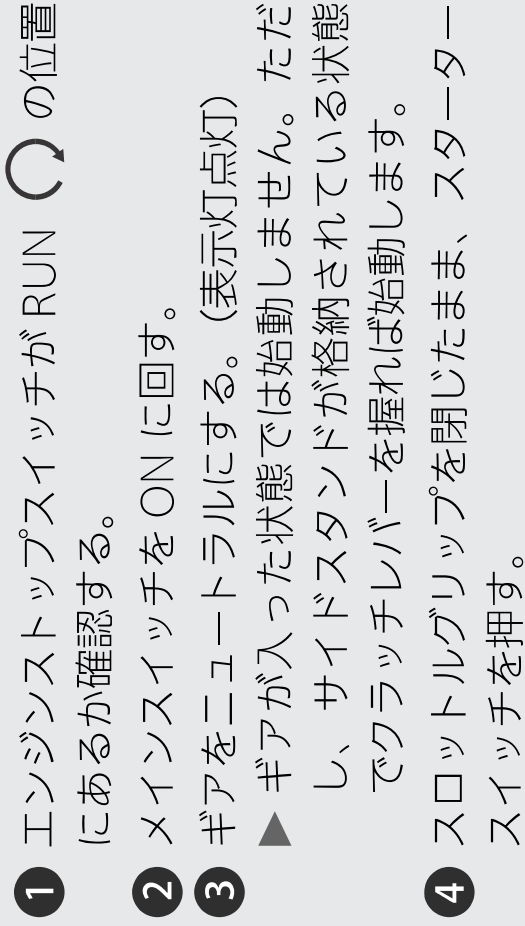 ❶ エンジンストップスイッチが RUN の位置
にあるか確認する。
❷ メインスイッチを ON に回す。
❸ ギアをニュートラルにする。（表示灯点灯）
▶ ギアが入った状態では始動しません。ただ
し、サイドスタンドが格納されている状態
でクラッチレバーを握れば始動します。
❹ スロットルグリップを閉じたまま、スターター
スイッチを押す。